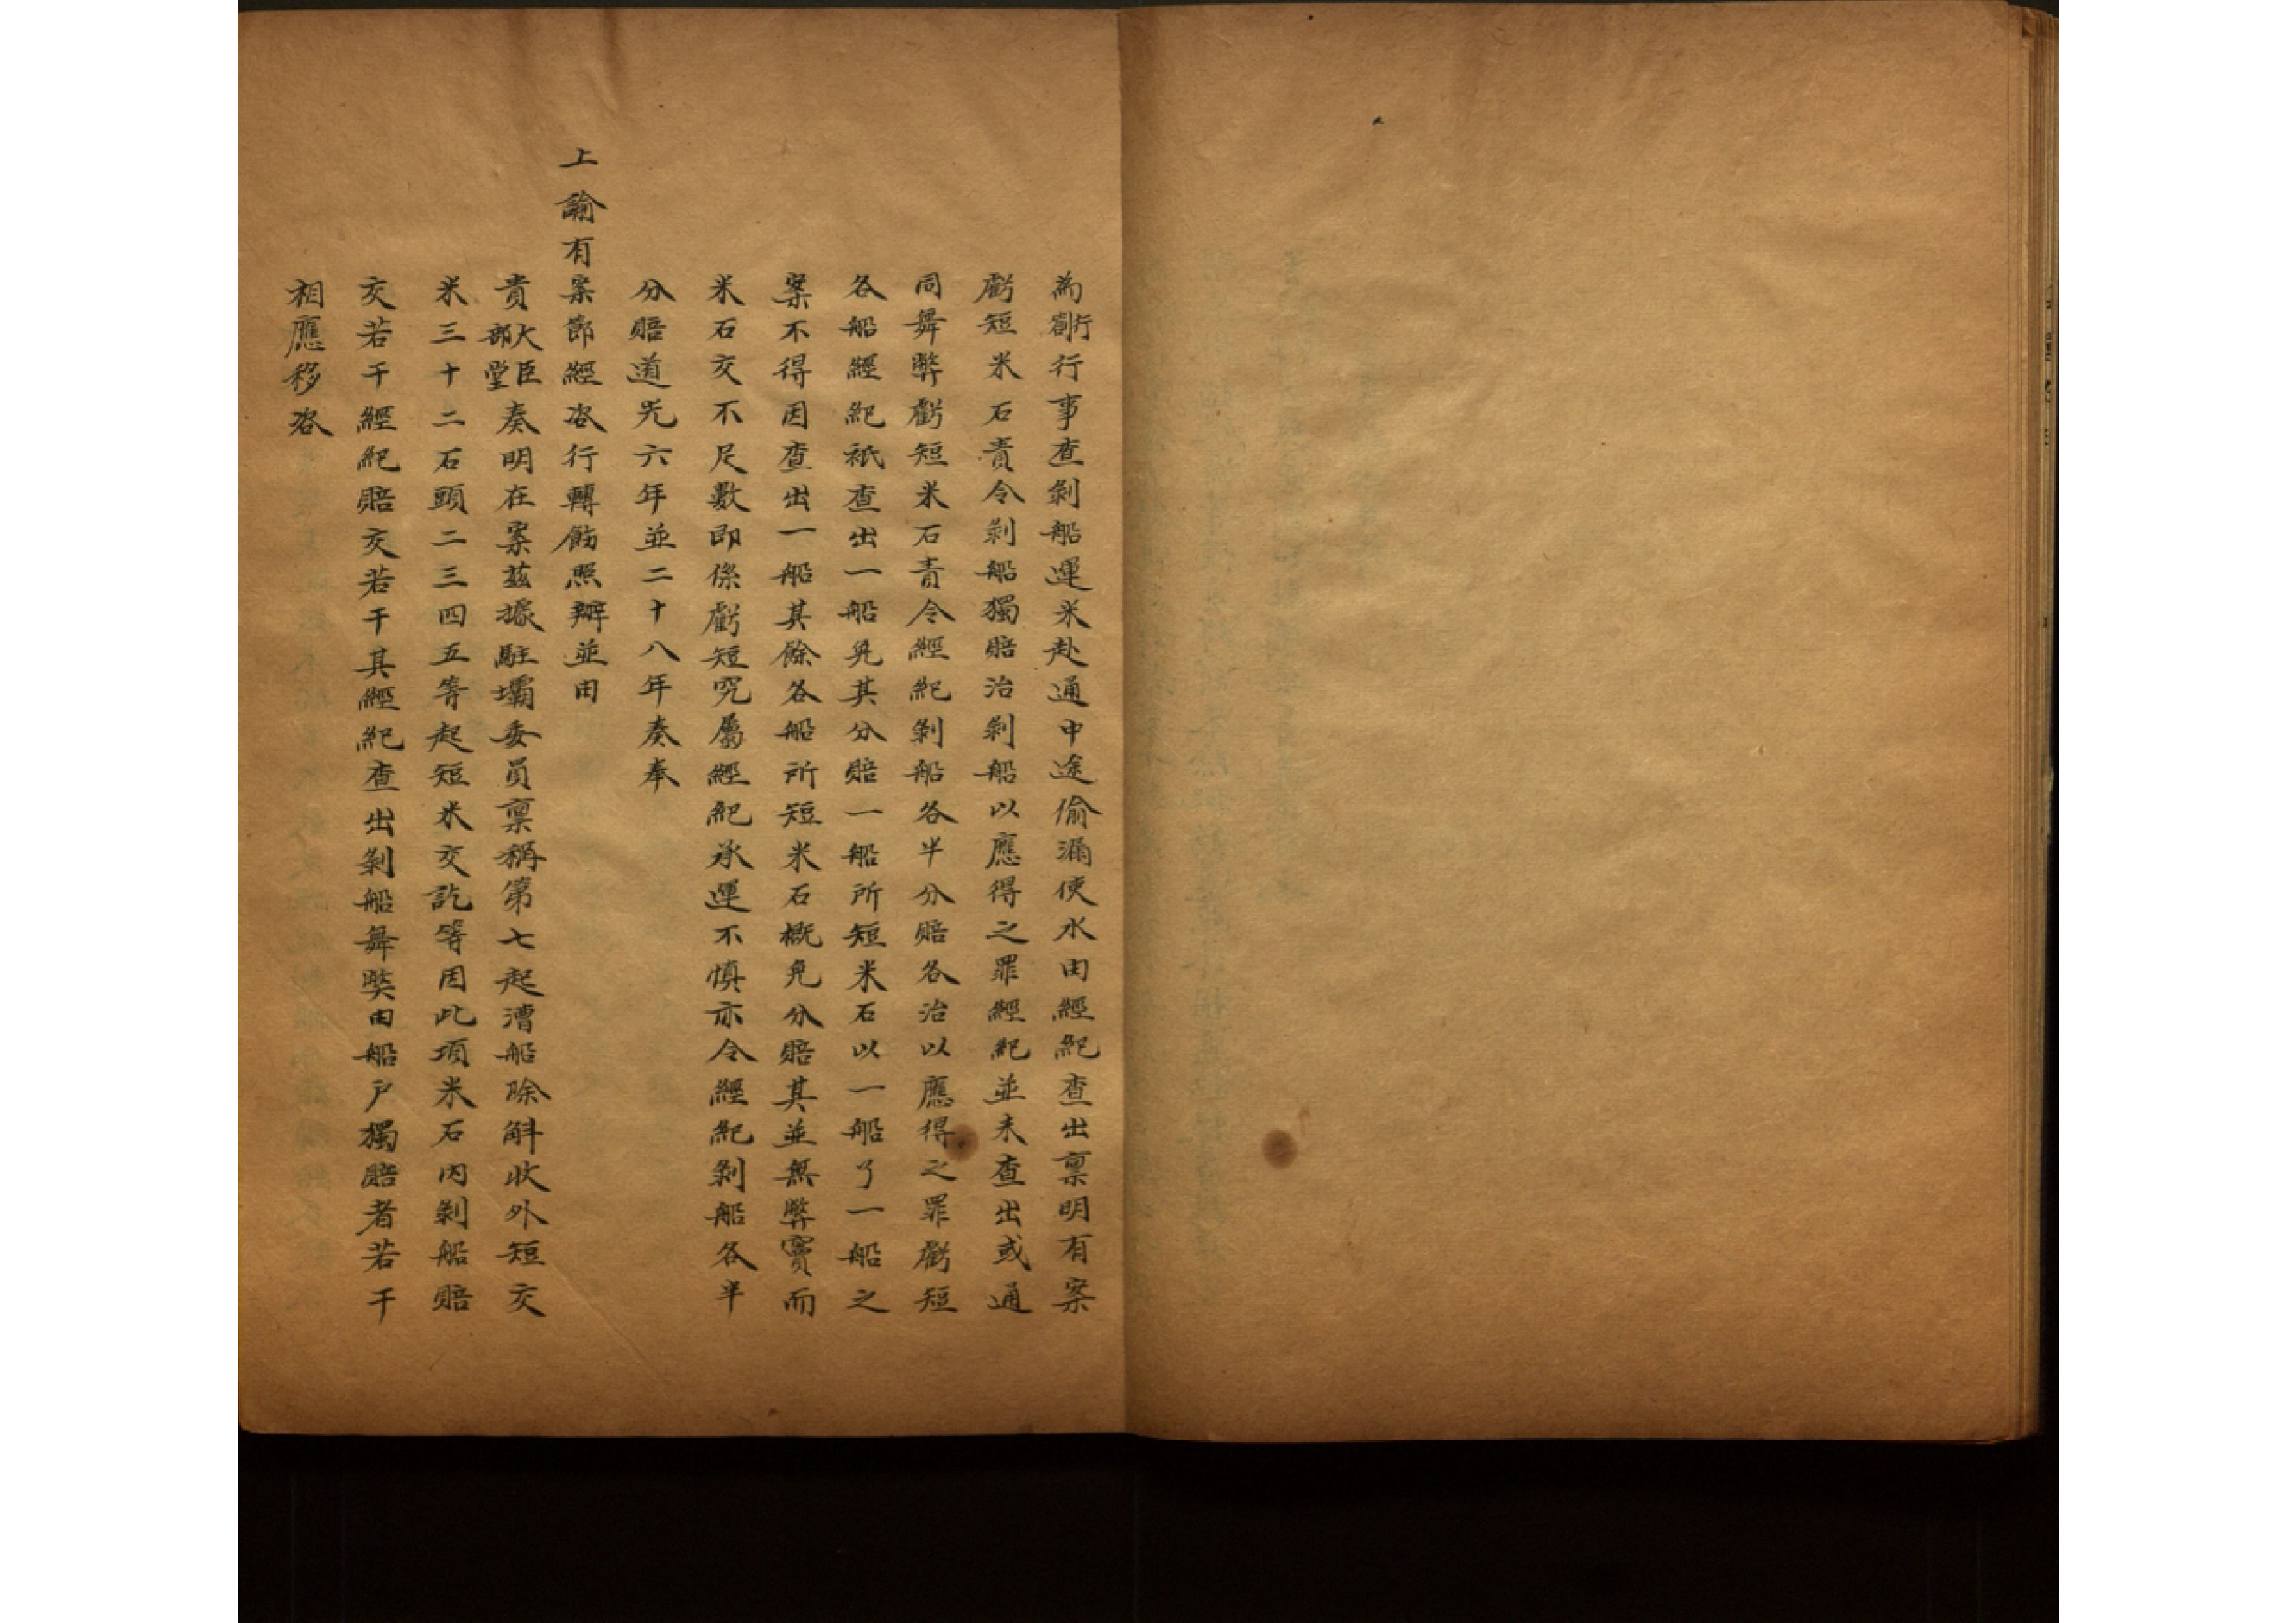 為劄行行事查剝船運米赴通中途偷漏使水由經紀查出稟明有案
虧短米石責令剝船獨賠治剝船以應得之罪經紀並未查出或通
同舞弊虧短米石責令經紀剝船各半分賠各治以應得之罪虧短
各船經紀祇查出一船免其分賠一船所短米石以一船了一船之
案不得因查出一船其餘各船所短米石概免分賠其並無弊竇而
米石交不足數即係虧短究屬經紀承運不慎亦令經紀剝船各半
分賠道光六年並二十八年奏奉
上諭有案節經咨行轉飭照辦並由
貴大臣部堂奏明在案茲據駐壩委員稟稱第七起漕船除斛收外短交
米三十二石頭二三四五等起短米交訖等因此項米石內剝船賠
交若干經紀賠交若干其經紀查出剝船舞獘由船戶獨賠者若干
相應移咨